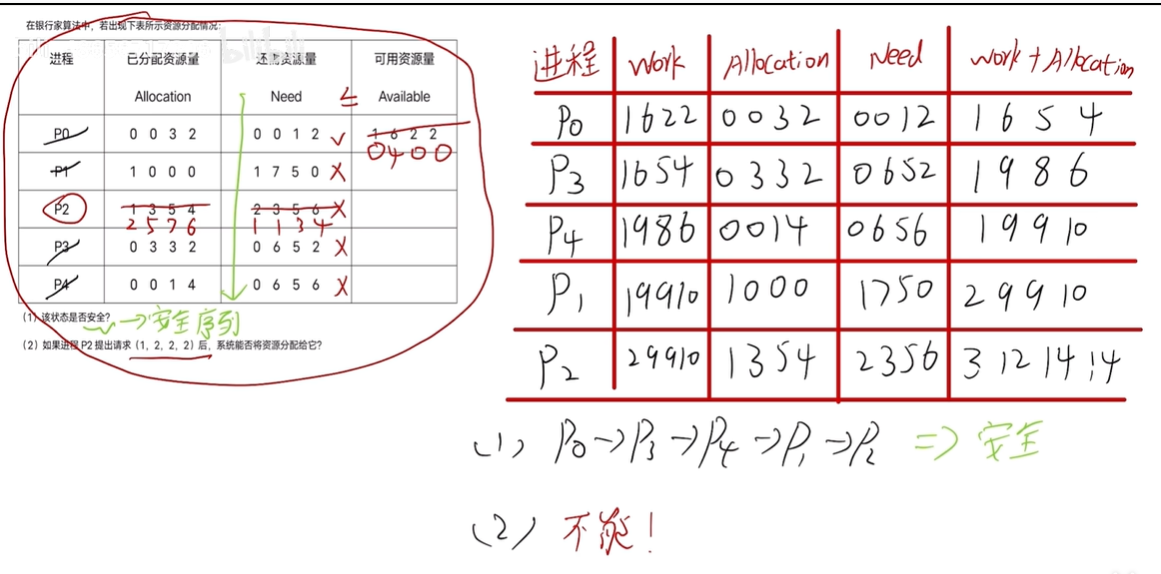 在银行家算法中，若出现下表所示资源分配情况：
进程 已分配资源量 还需资源量 可用资源量
Allocation Need ≤ Available
P0 0 0 3 2 0 0 1 2 ✓ 1 6 2 2
0 4 0 0
P1 1 0 0 0 1 7 5 0 X
P2 1 3 5 4 2 3 5 6 X
2 5 7 6 1 1 3 4
P3 0 3 3 2 0 6 5 2 X
P4 0 0 1 4 0 6 5 6 X
(1) 该状态是否安全? → 安全序列
(2) 如果进程 P2 提出请求（1, 2, 2, 2）后，系统能否将资源分配给它?
进程 Work Allocation Need Work+Allocation
P0 1622 0032 0012 1654
P3 1654 0332 0652 1986
P4 1986 0014 0656 19910
P1 19910 1000 1750 29910
P2 29910 1354 2356 3 12 14 14
(1) P0→P3→P4→P1→P2 ⇒ 安全
(2) 不能!